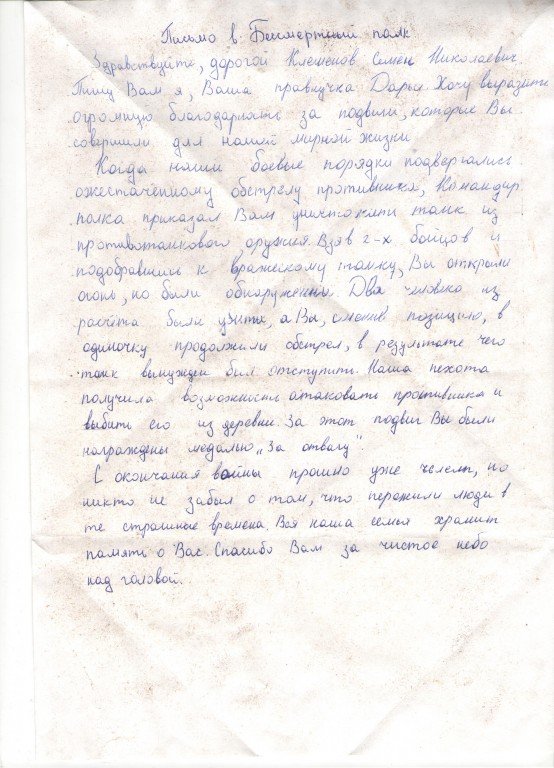 Письмо в Бессмертный полк
Здравствуйте, дорогой Клеменов Семен Николаевич.
Пишу Вам я, Ваша правнучка Дарья. Хочу выразить
огромную благодарность за подвиги, которые Вы
совершили для нашей мирной жизни.
Когда наши боевые порядки подвергались
ожесточенному обстрелу противника, Командир
полка приказал Вам уничтожить танк из
противотанкового оружия. Взяв 2-х бойцов и
подобравшись к вражескому танку, Вы открыли
огонь, но были обнаружены. Два человека из
расчёта были убиты, а Вы, сменив позицию, в
одиночку продолжили обстрел, в результате чего
танк вынужден был отступить. Наша пехота
получила возможность атаковать противника и
выбить его из деревни. За этот подвиг Вы были
награждены медалью „За отвагу“.
С окончания войны прошло уже лет, но
никто не забыл о том, что пережили люди в
те страшные времена. Вся наша семья хранит
память о Вас. Спасибо Вам за чистое небо
над головой.